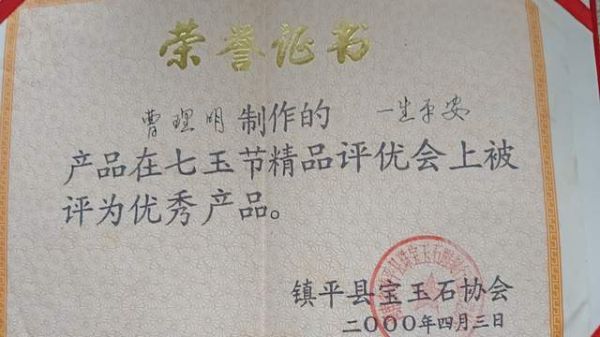 荣誉证书
曹理明 制作的 一生平安
产品在七玉节精品评优会上被
评为优秀产品。
镇平县宝玉石协会
二〇〇〇年四月三日